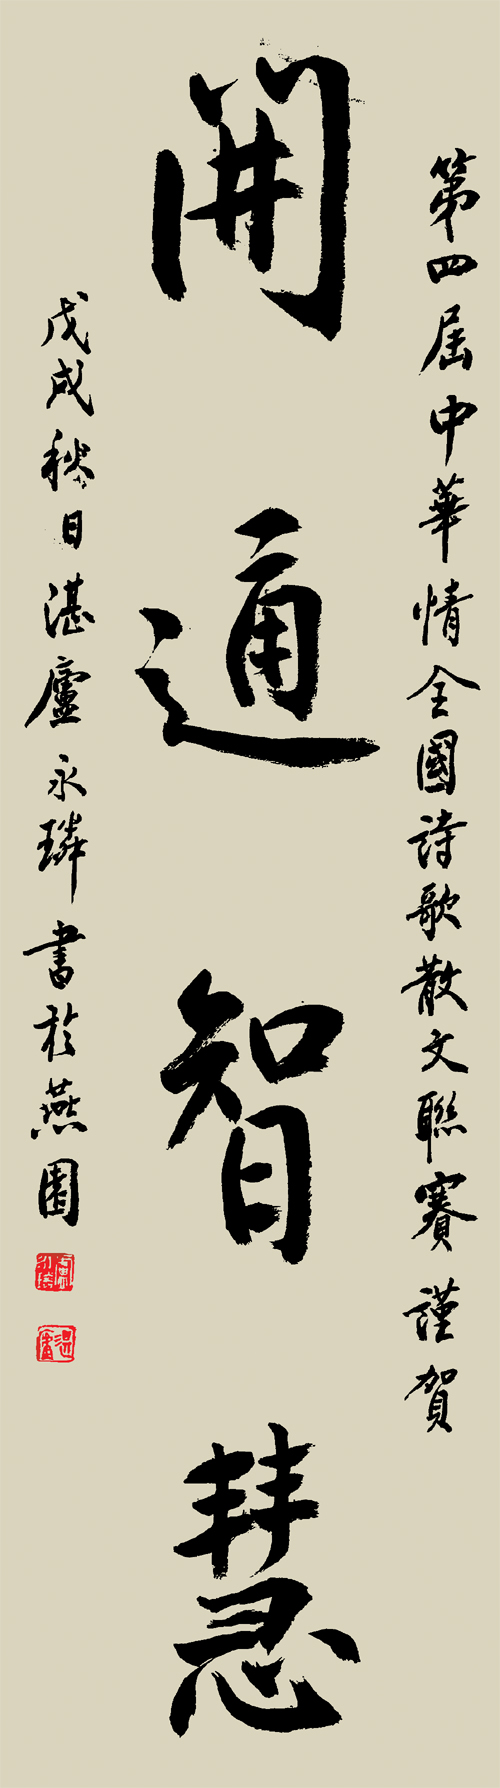 第四屆中華情全國詩歌散文聯賽謹賀
開通智慧
戊戌秋日湛廬永璘書於燕園